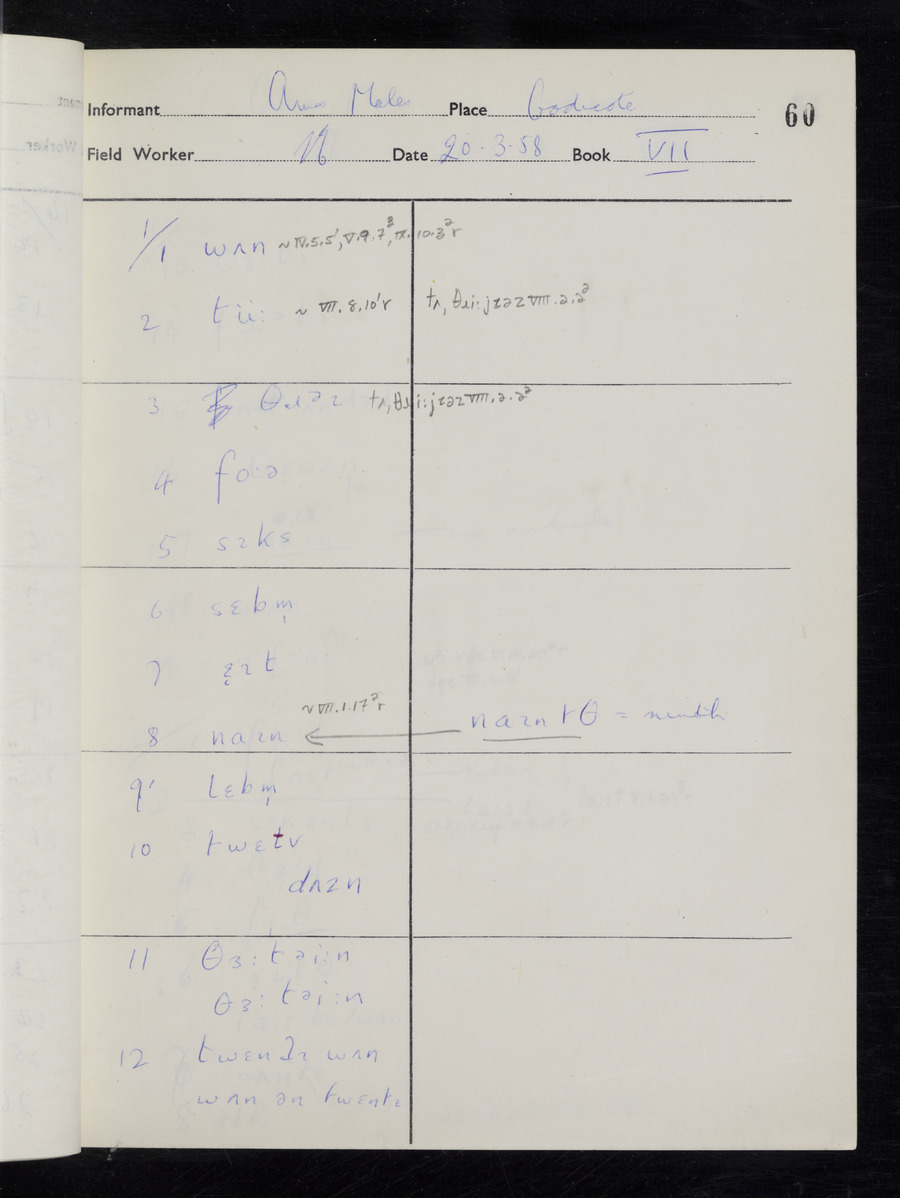 Informant Place Codicote 60
Field Worker N Date 20.3.58 Book VII
1/1 wʌn ~ IV.5.5¹, V.9.7³, IX.10.3² r
2 tü: ~ VII.8.10¹ r tʌ, θɹi: jɪəz VIII.2.2²
3 θɹəɪ tʌ, θɹi: jɪəz VIII.2.2²
4 fo:ə
5 sɪks
6 sɛbm̩
7 ɛ̞ɪt
8 naɪn ~ VII.1.17² r naɪntθ = ninth
9 lɛbm̩
10 twɛtv
dʌzn
11 θɜ:təi:n
θɜ:təi:n
12 twɛntɪ wʌn
wʌn ən twɛntɪ